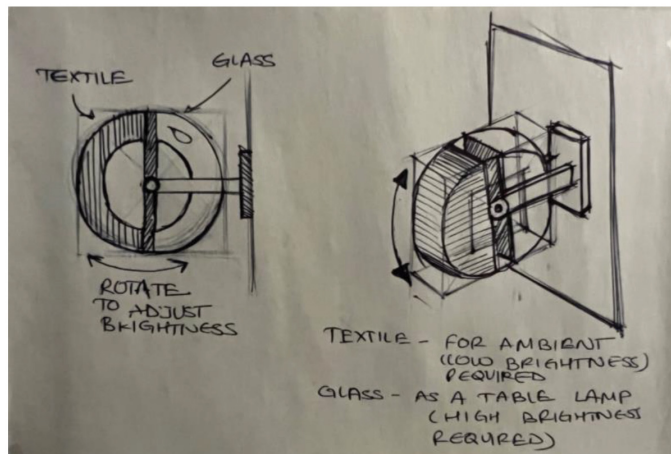 TEXTILE
GLASS
ROTATE
TO ADJUST
BRIGHTNESS
TEXTILE - FOR AMBIENT
(LOW BRIGHTNESS)
REQUIRED
GLASS - AS A TABLE LAMP
(HIGH BRIGHTNESS
REQURED)